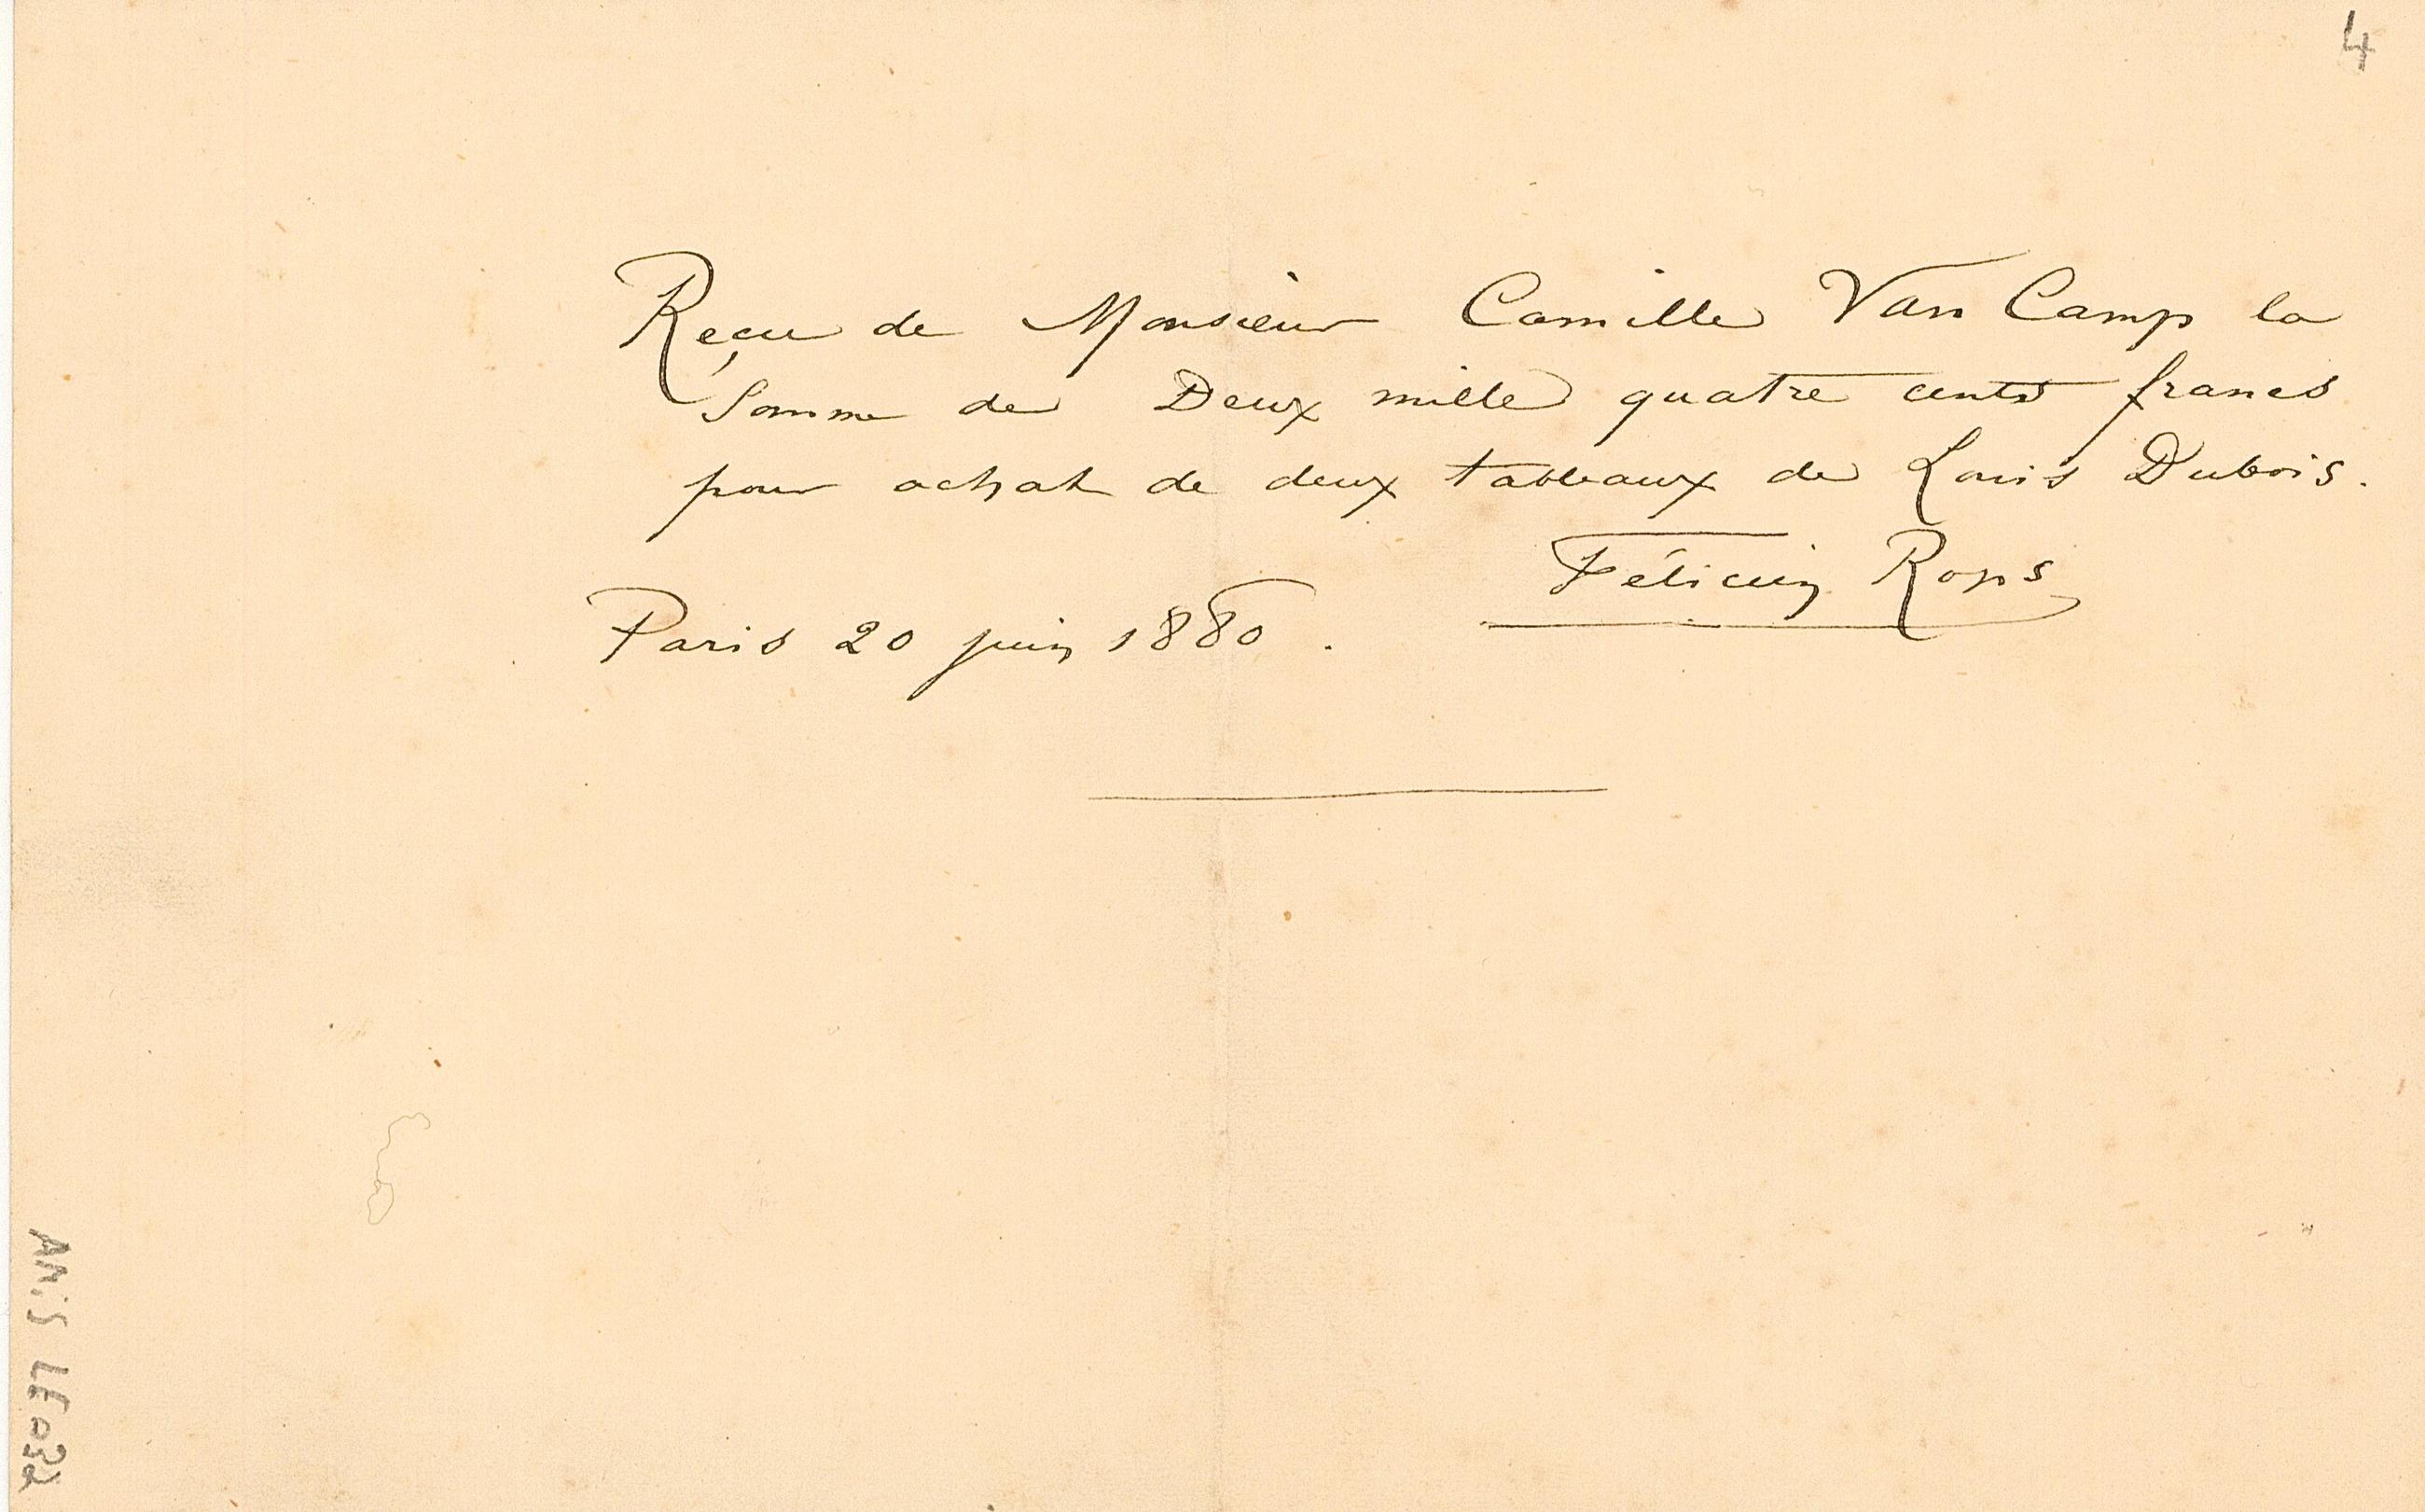 4
Reçu de Monsieur Camille Van Camp la
Somme de Deux mille quatre cents francs
pour achat de deux tableaux de Louis Dubois.
Félicien Rops
Paris 20 juin 1880.
AMIS LE 032